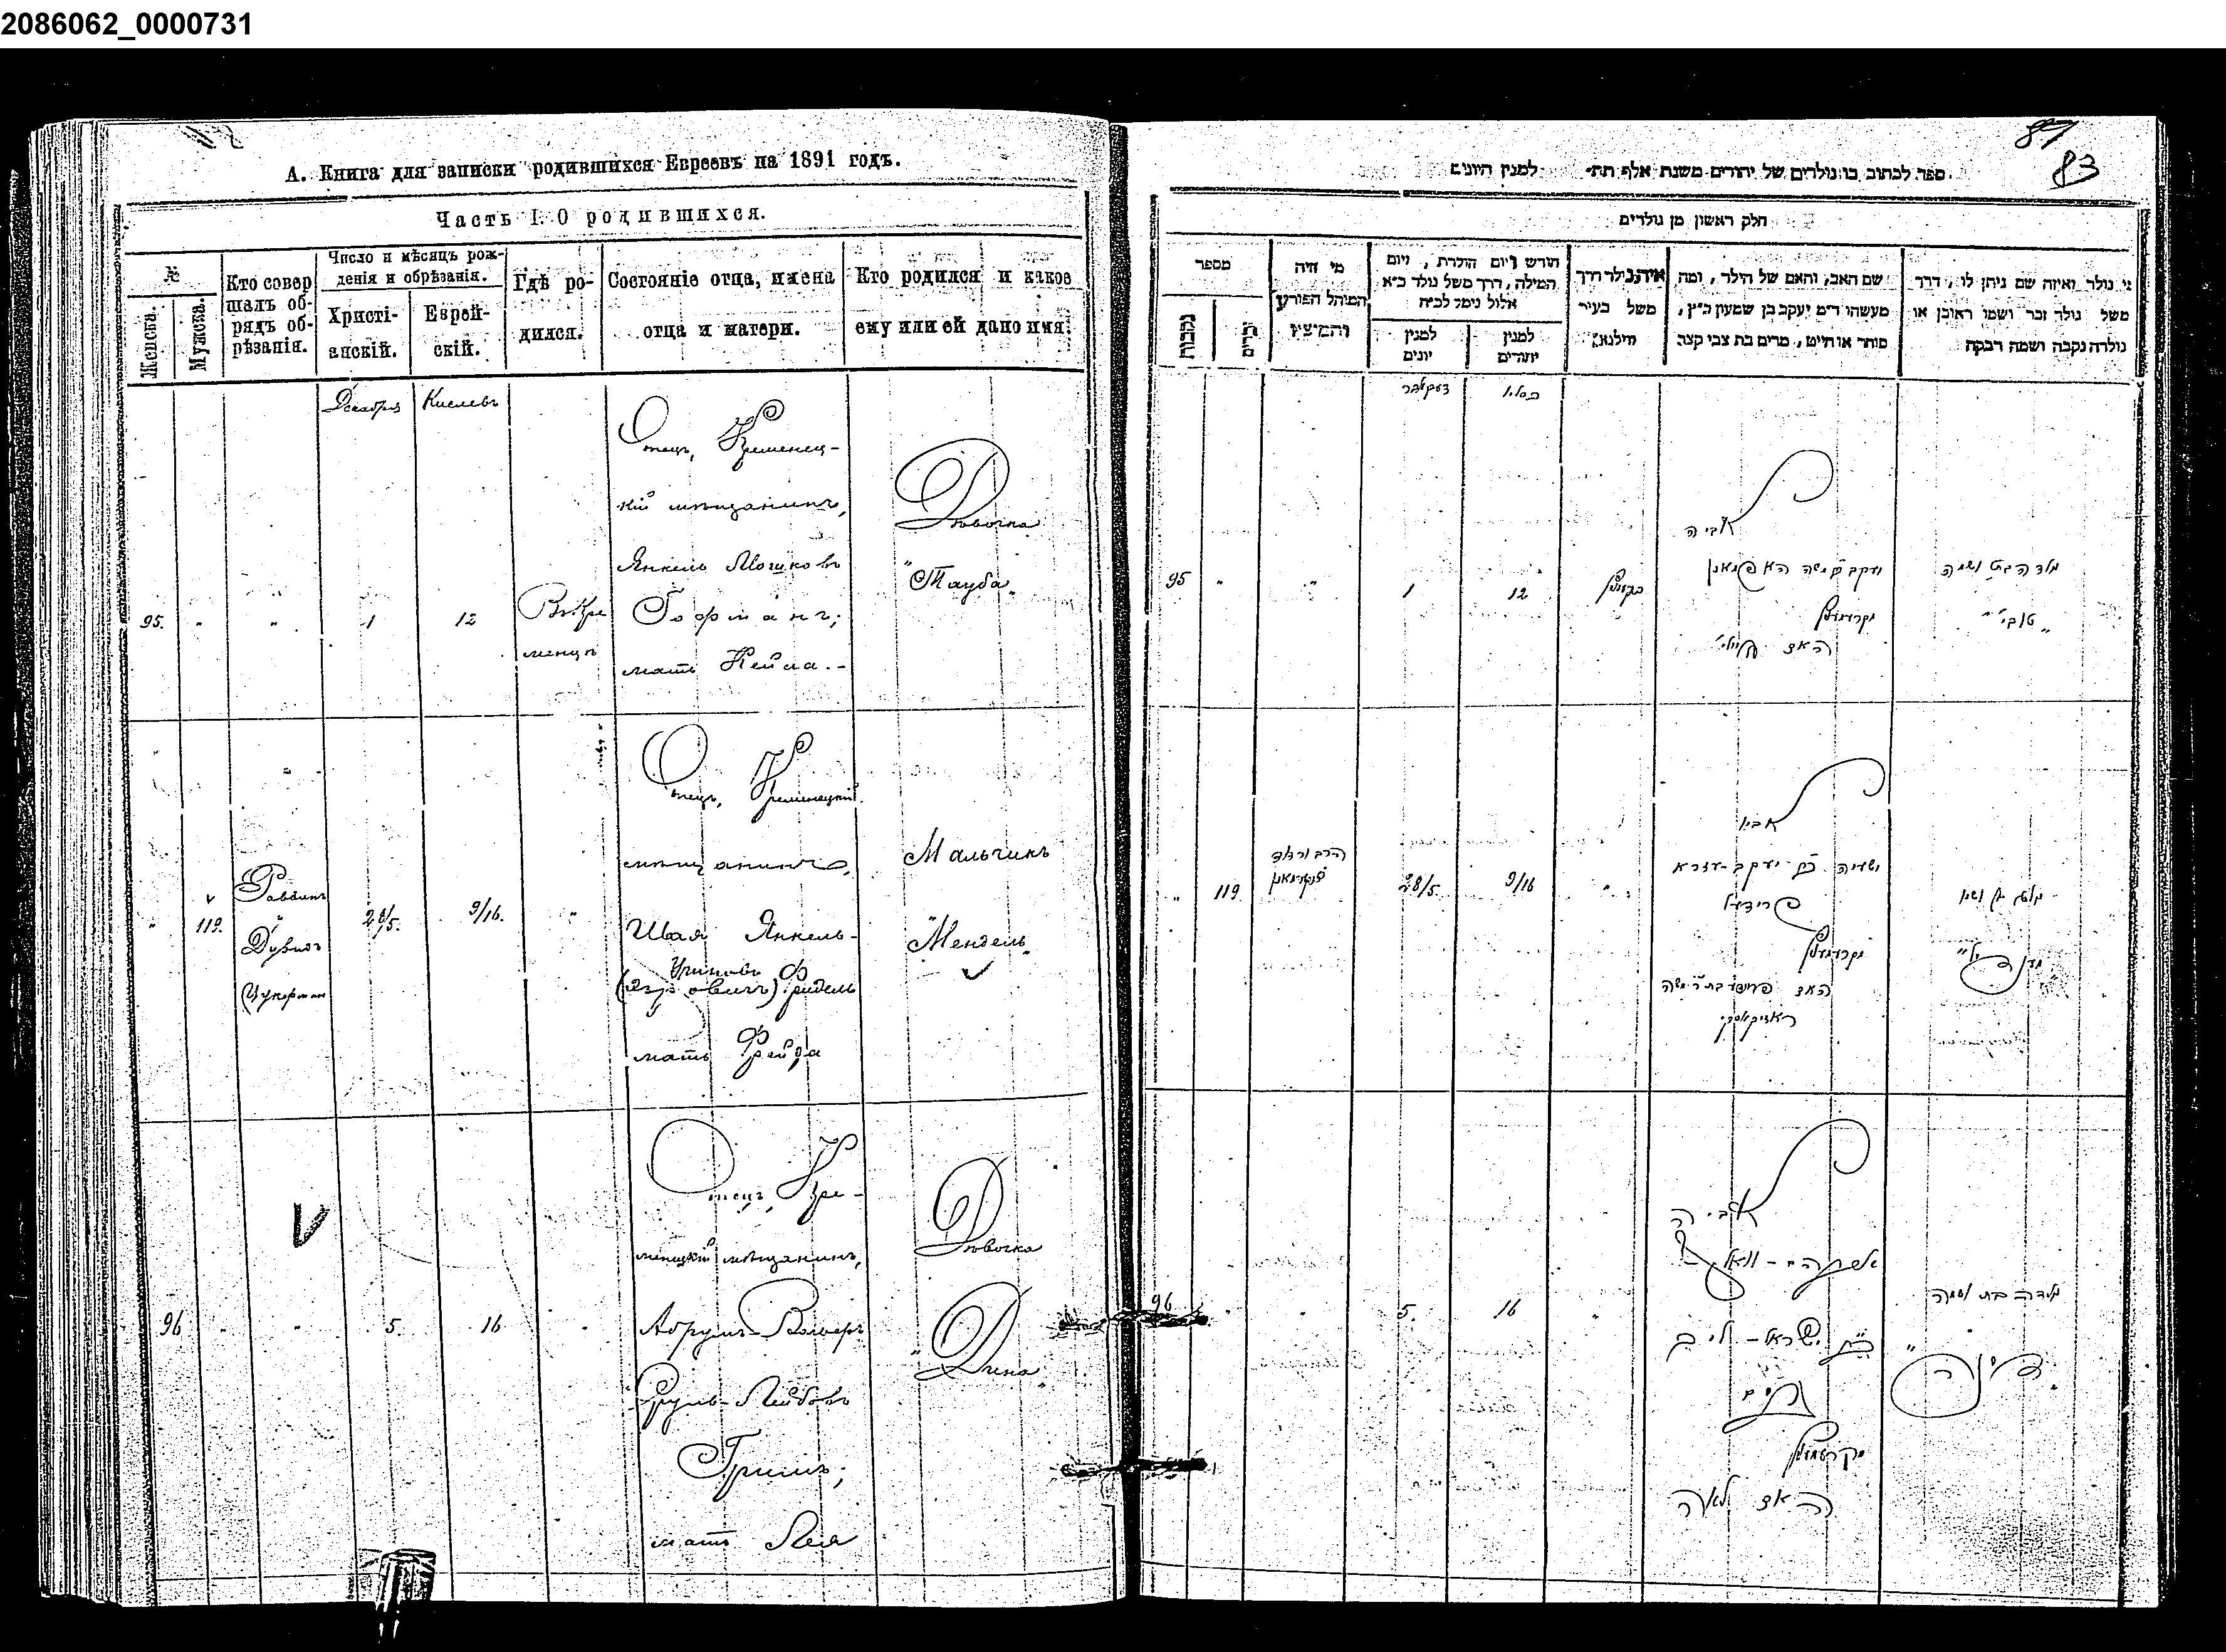 2086062_0000731
А. Книга для записки родившихся Евреевъ на 1891 годъ.
Часть I. О родившихся.
№
Женска.
Мужска.
Кто совер
шалъ об-
рядъ об-
рѣзанія.
Число и мѣсяцъ рож-
денія и обрѣзанія.
Христі-
анскій.
Еврей-
скій.
Гдѣ ро-
дился.
Состояніе отца, имена
отца и матери.
Кто родился и какое
ему или ей дано имя.
Декабрь
Кислевъ
95.
"
"
1
12
Въ Кре
менцѣ
Отецъ, Кременец-
кій мѣщанинъ,
Янкель Мошковъ
Гофманъ;
мать Нейма.-
Дѣвочка
"Тауба"
"
119.
Раввинъ
Дувидъ
Цукерман
28/5.
9/16.
"
Отецъ, Кременецкій
мѣщанинъ,
Шая Янкель-
Фридель
мать Фрейда
Мальчикъ
"Мендель"
96
"
"
5.
16
"
Отецъ, Кре-
менецкій мѣщанинъ,
Абрумъ-Вольфъ
Срулъ-Лейбовъ
Гримъ;
мать Лея
Дѣвочка
"Дина"
87
83
ספר לכתוב בו נולדים של יהודים משנת אלף תת״ למנין היונים
חלק ראשון מן נולדים
מספר
נקבות
זכרים
מי היה
המוהל הפורע
והמוציץ
חודש ויום הולדת, ויום
המילה, דרך משל נולד כ״א
אלול נימל לכ״ח
למנין
יונים
למנין
יהודים
איה נולד דרך
משל בעיר
ווילנא
שם האב, והאם של הילד, ומה
מעשהו ד״מ יעקב בן שמעון כ״ץ,
סוחר או חייט, מרים בת צבי קצב
מי נולד ואיזה שם ניתן לו, דרך
משל נולד זכר ושמו ראובן או
נולדה נקבה ושמה רבקה
דעקאבר
כסלו
95
"
"
1
12
אביה
יעקב משה האפמאן
האם
נולדה בת ושמה
"טובי"
"
119
הרב דוד
צוקערמאן
28/5.
9/16
"
אביו
ישעיה יעקב-עזרא
פרידל
האם
נולד בן ושמו
"מענדיל"
96
"
"
5.
16
"
אביה
אברהם-וואלף
ישראל-ליב
גרים
האם לאה
נולדה בת ושמה
"דינה"